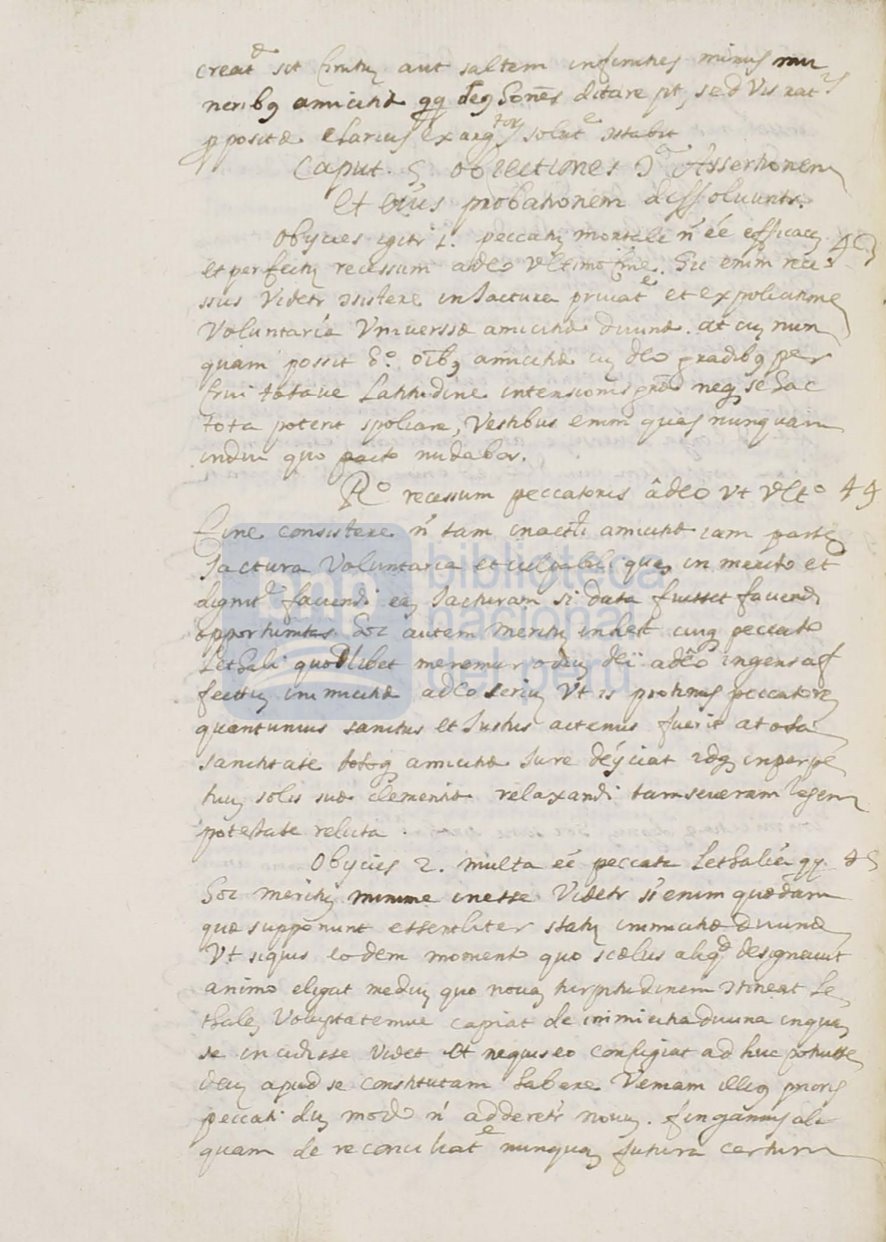 creat.ᵉ sit finitu, aut saltem infinities minus mu
neribq amicitiæ qq deq hoẽs ditare pt, sed Vis rat.ⁱˢ
ppositæ clarius ex arg.ᵗᵒʳ, solut.ᵉ ɔstabit
Caput. 5 obiectiones ɔᵃ Assertionem
et eius probationem dissoluuntr.
Obycies igitr 1. peccatu, mortale ñ eé efficace,
et perfectu, recessum adeo Vltimo fine. Sic enim reces
sus Videtr ɔsistere in Jactura priuat.ᵉ et expoliatione
Voluntaria Vniuersæ amicitiæ diuinæ. at cu, nun
quam possit hº. oĩbq amicitiæ cu, deo gradibq per
frui totaue Latitudine intensionis neq, se hac
tota poterit spoliare, Vestibus enim quas nunquam
indui quo pacto nudabor.
Rº recessum peccatoris âdeo Vt Vltº 44
fine consistere ñ tam in amicitiæ iam partæ
Jactura Voluntaria et culpabili qua, in merito et
dignit.ᵉ faciendi ea, Jacturam si data fuisset faciendi
opportunitas hoc autem meritu, inhest cuiq, peccato
Lethali quodlibet meremur odiu, deï adeo ingens af
fectu, inimicitiæ adeo seriu, Vt is protinus peccatore,
quantumuis sanctus et Justus actenus fuerit a tota
sanctitate totoq, amicitiæ Jure déyciat idq, in perpe
tuu, solis suæ clementiæ relaxandi tam seueram legem
potestate relicta.
Obycies 2. multa eé peccata Lethalia qq. 45
hoc meritu, minime inesse Videtr st enim quædam
quæ supponunt essentliter statu, inimicitiæ diuinæ
Vt siquis eodem momento quo scælus aliqº designauit
animo eligat mediu, quo noua, turpitudinem ɔtineat Le
thale, Voluptatemue capiat de inimicitia diuina in qua,
se incidisse Videt et nequiseo confugiat adhuc potuisse
deu, apud se constitutam habere Veniam illiq prioris
peccati du, modo ñ adderetr nouu,. fingamus ali
quam de reconciliat.ᵉ nunqua, futura certum